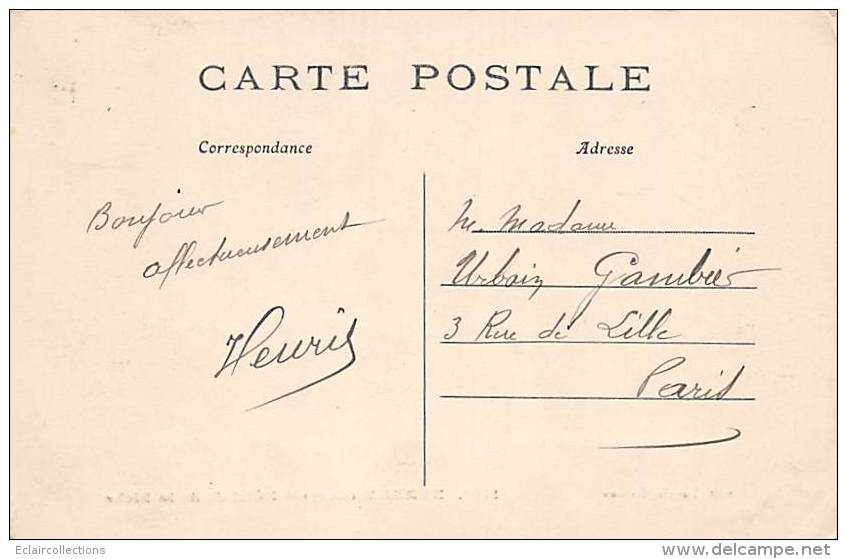 CARTE POSTALE
Correspondance
Adresse
Bonjour
affectueusement
Henri
M. Madame
Urbain Gambier
3 Rue de Lille
Paris
Eclaircollections
delcampe.net